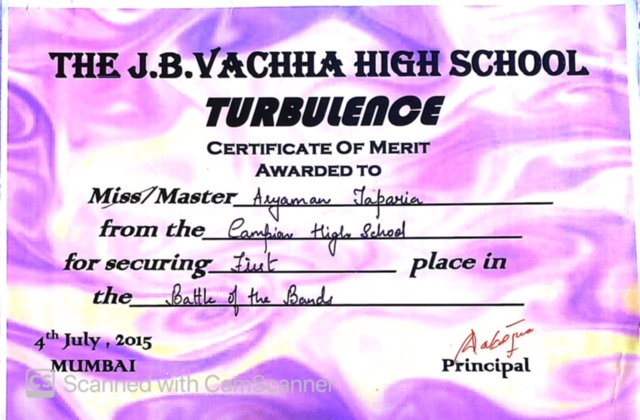 THE J.B.VACHHA HIGH SCHOOL
TURBULENCE
CERTIFICATE OF MERIT
AWARDED TO
Miss/Master Aryaman Taparia
from the Campion High School
for securing First place in
the Battle of the Bands
4th July , 2015
MUMBAI
Principal
CS Scanned with CamScanner